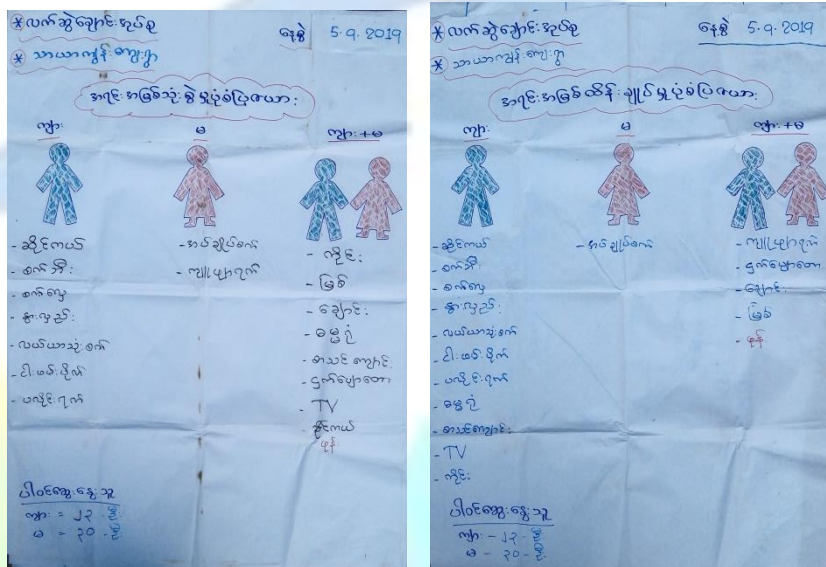 * လက်ဆွဲချောင်းအုပ်စု
နေ့စွဲ 5.9.2019
* သာယာကုန်းကျေးရွာ
အရင်းအမြစ်သုံးစွဲမှုပုံစံပြဇယား
ကျား
မ
ကျား+မ
- ဆိုင်ကယ်
- စက်ဘီး
- စက်လှေ
- နွားလှည်း
- လယ်ယာသုံးစက်
- ငါးဖမ်းပိုက်
- ပလိုင်းရွက်
- အပ်ချုပ်စက်
- ကျုပျာရွက်
- ကိုင်း
- မြစ်
- ချောင်း
- ဓမ္မာရုံ
- စာသင်ကျောင်း
- ငှက်ပျောတော
- TV
- ဆိုင်ကယ်
ဖုန်း
ပါဝင်ဆွေးနွေးသူ
ကျား = ၂၃ - ဦး
မ = ၃၀ - ဦး
* လက်ဆွဲချောင်းအုပ်စု
နေ့စွဲ 5.9.2019
* သာယာကုန်းကျေးရွာ
အရင်းအမြစ်ထိန်းချုပ်မှုပုံစံပြဇယား
ကျား
မ
ကျား+မ
- ဆိုင်ကယ်
- စက်ဘီး
- စက်လှေ
- နွားလှည်း
- လယ်ယာသုံးစက်
- ငါးဖမ်းပိုက်
- ပလိုင်းရွက်
- ဓမ္မာရုံ
- စာသင်ကျောင်း
- TV
- ကိုင်း
- အပ်ချုပ်စက်
- ကျုပျာရွက်
- ငှက်ပျောတော
- ချောင်း
- မြစ်
- ဖုန်း
ပါဝင်ဆွေးနွေးသူ
ကျား - ၂၃ - ဦး
မ - ၃၀ - ဦး